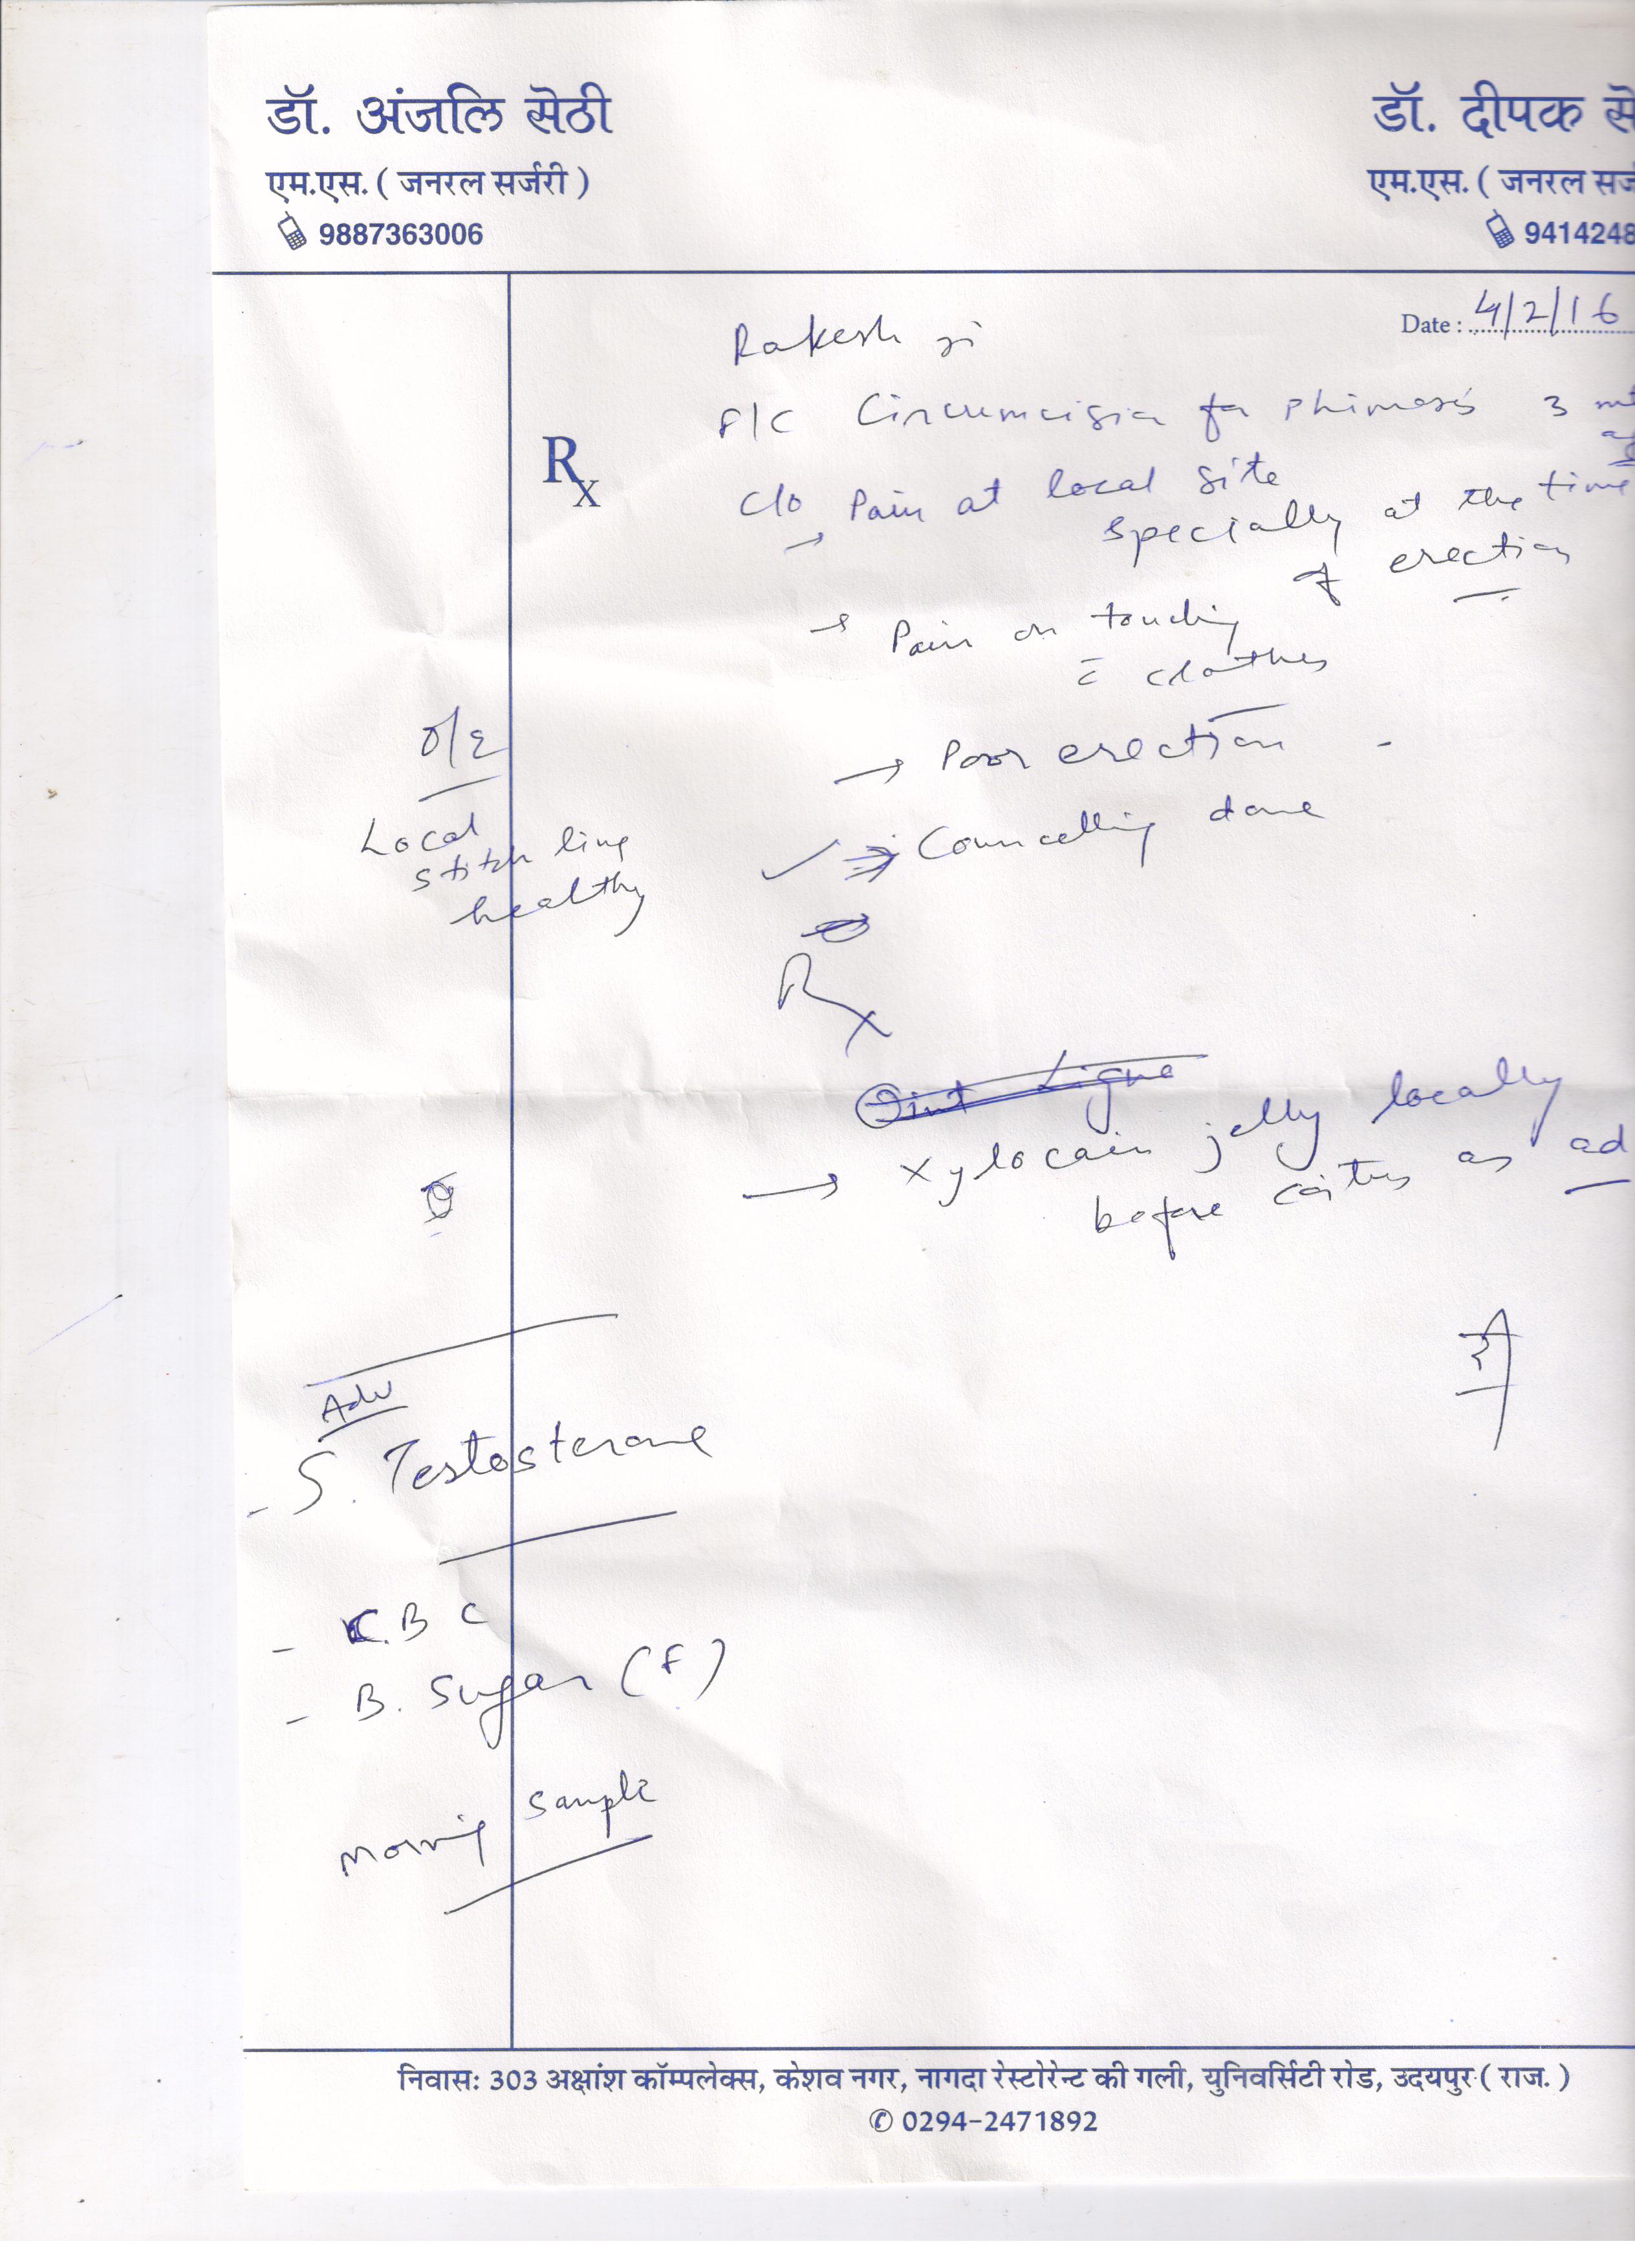 डॉ. अंजलि सेठी
एम.एस. ( जनरल सर्जरी )
9887363006
डॉ. दीपक से
एम.एस. ( जनरल सर्ज
9414248
Date : 4/2/16
Rakesh ji
Rx
F/C Circumcision for Phimosis 3 mt
C/o Pain at local site
specially at the time
of erection
→ Pain on touching
c̄ clothes
O/E
→ Poor erection
Local
stitch line
healthy
Councelling done
Rx
Oint Ligno
→ xylocain jelly locally
before coitus as ad
Adv
- S. Testosterone
- C.B C
- B. Sugar (F)
Morning Sample
निवास: 303 अक्षांश कॉम्पलेक्स, केशव नगर, नागदा रेस्टोरेन्ट की गली, युनिवर्सिटी रोड, उदयपुर ( राज. )
✆ 0294-2471892